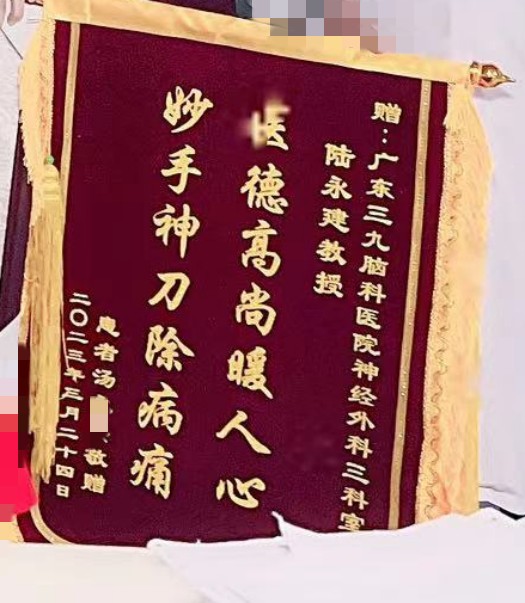 赠：广东三九脑科医院神经外科三科室
陆永建教授
德高尚暖人心
妙手神刀除病痛
患者汤 敬赠
二〇二三年三月二十四日